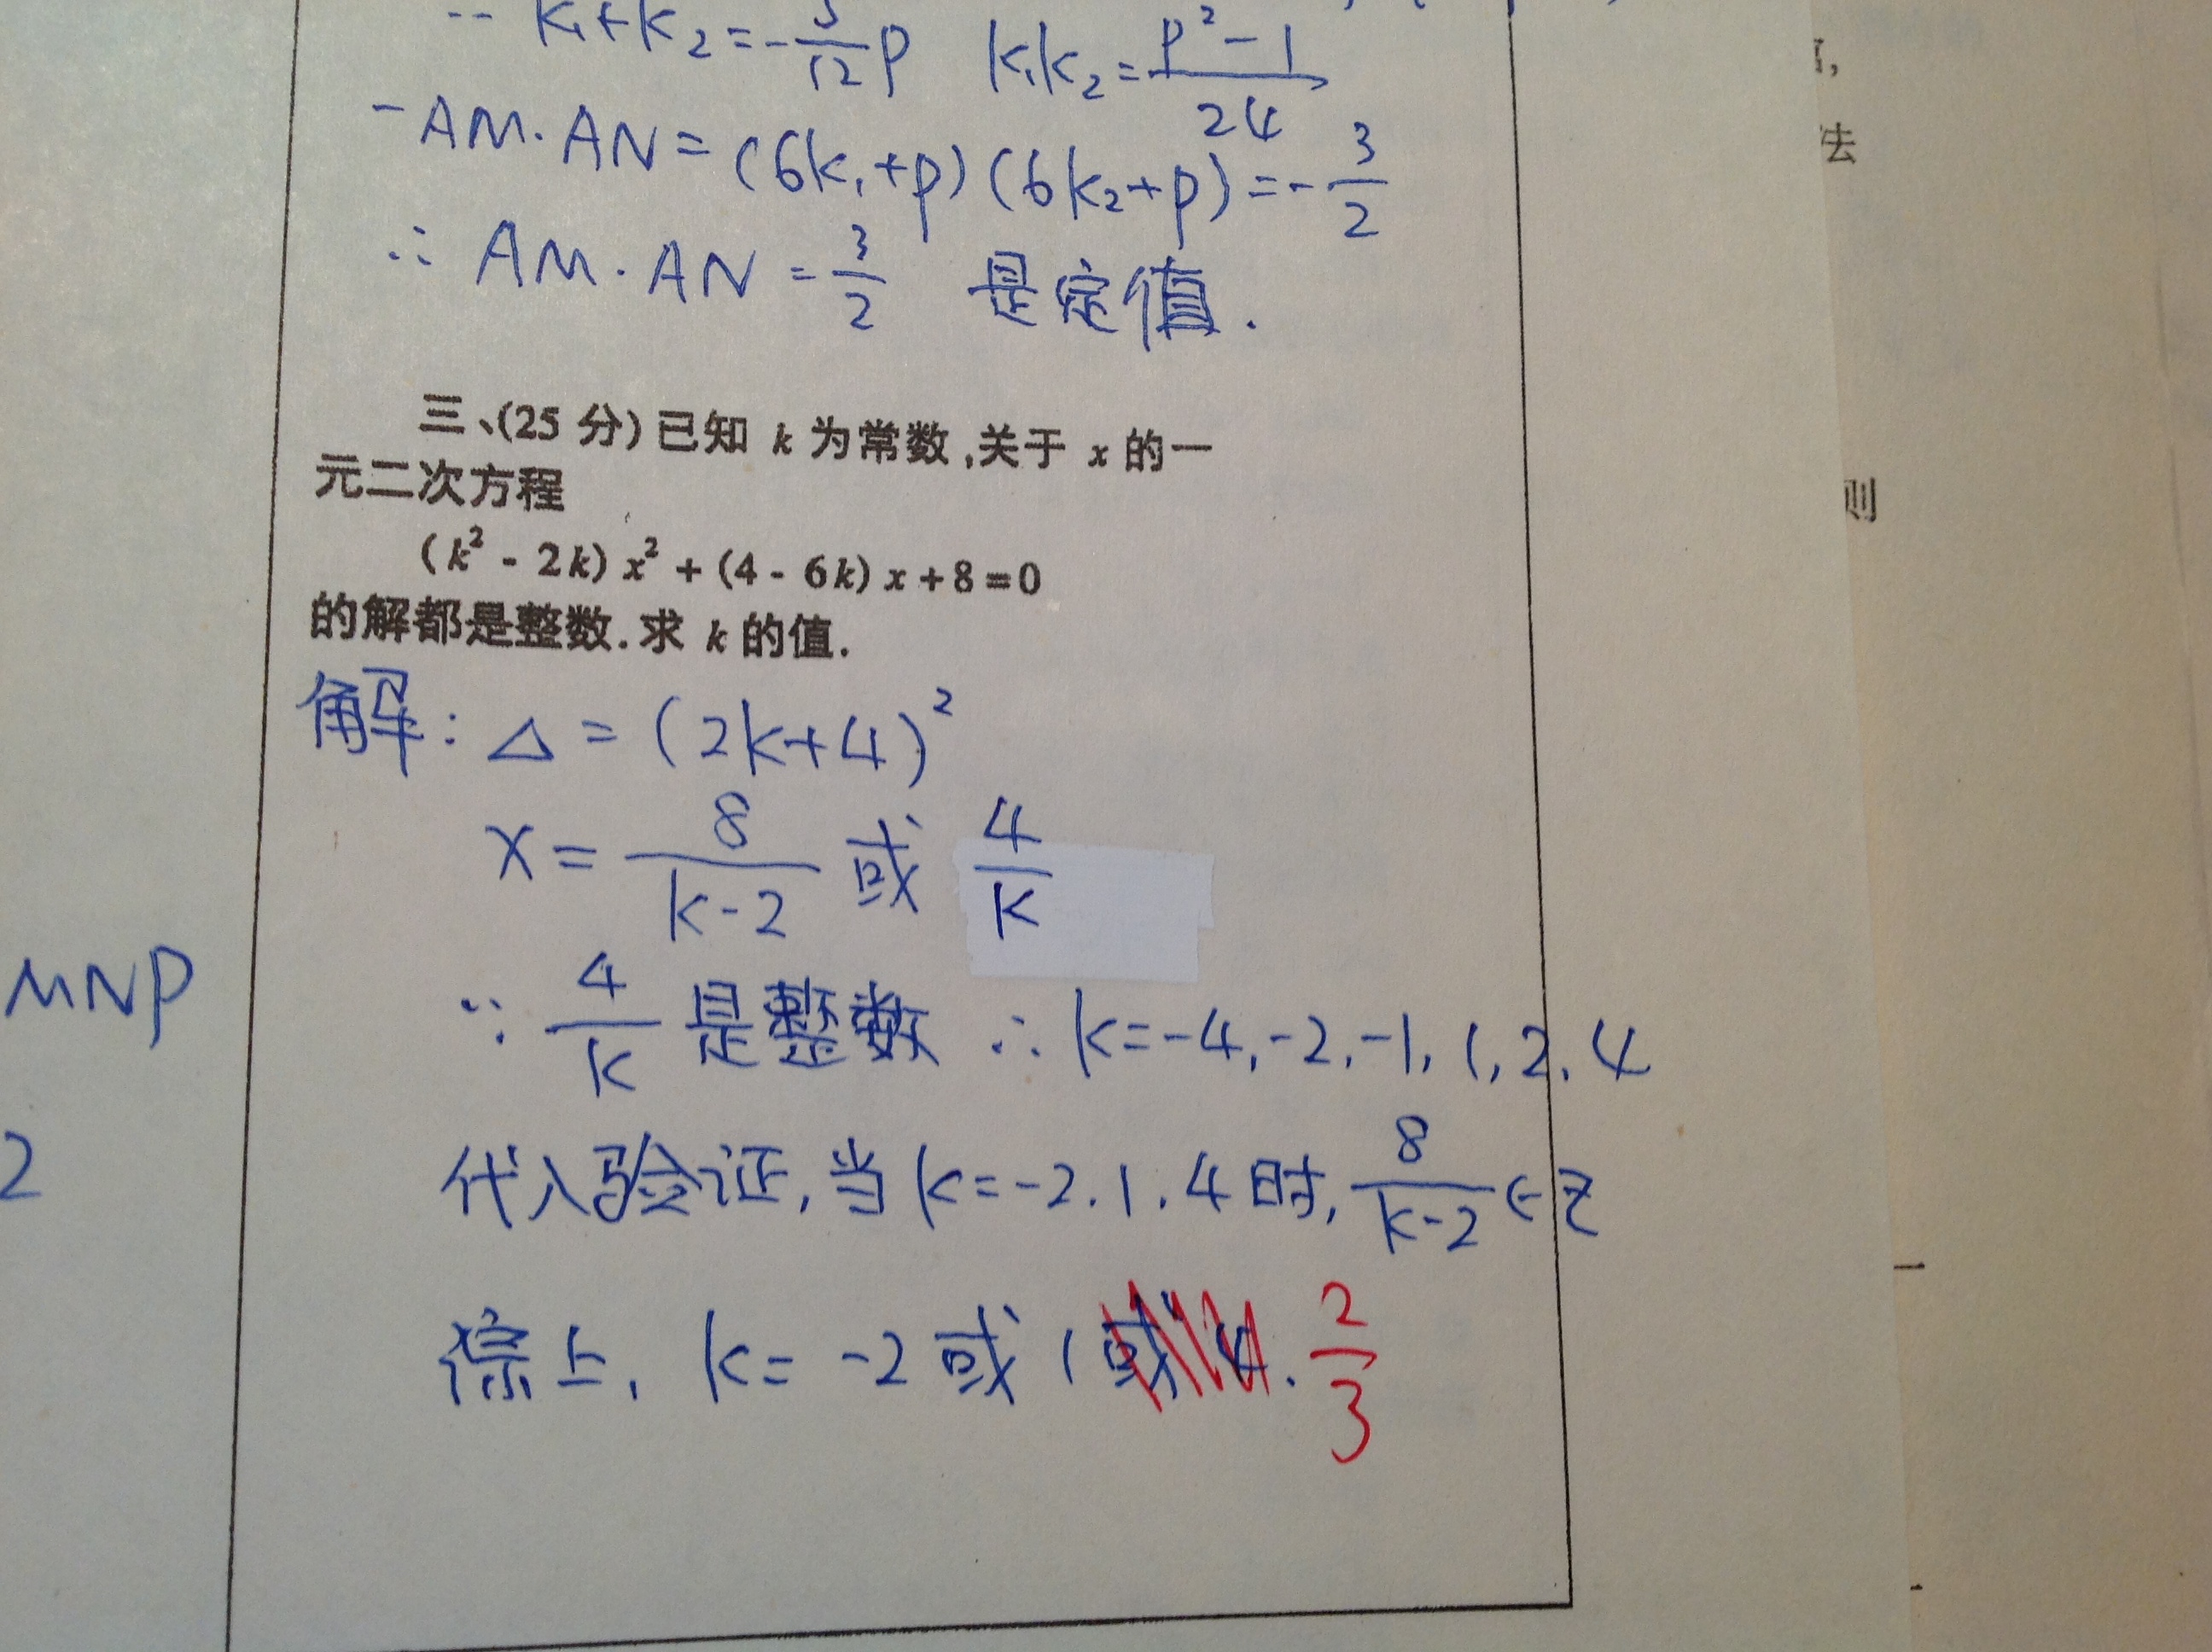 K₁+K₂=-5/12 p K₁K₂=p²-1/24
-AM·AN=(6k₁+p)(6k₂+p)=-3/2
∴ AM·AN=3/2 是定值.
三、(25 分) 已知 k 为常数,关于 x 的一
元二次方程
(k²-2k)x²+(4-6k)x+8=0
的解都是整数.求 k 的值.
解: △=(2k+4)²
x=8/k-2 或 4/k
MNP
∵ 4/k 是整数 ∴ k=-4,-2,-1,1,2,4
2
代入验证,当 k=-2.1.4 时, 8/k-2 ∈Z
综上, k=-2 或 1 或 4. 2/3
法
则